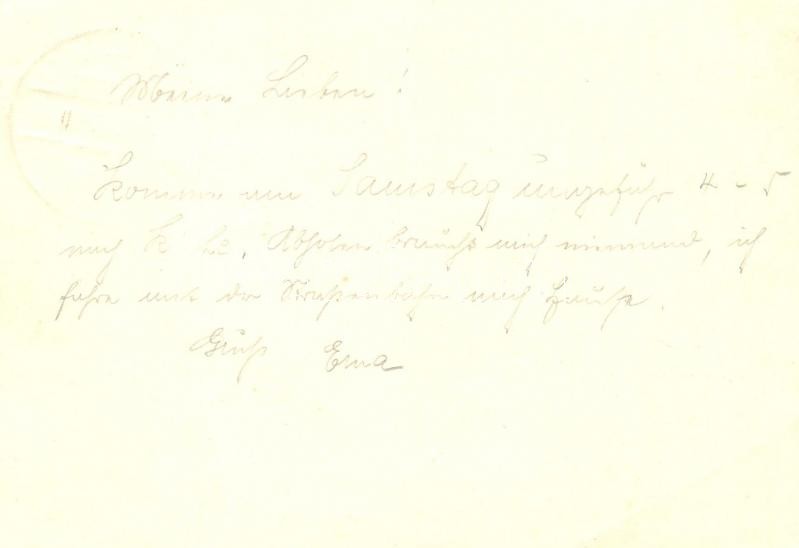 Meine Lieben!
Komme am Samstag ungefähr 4 - 5
nach K'he. Abholen braucht mich niemand, ich
fahre mit der Straßenbahn nach Hause.
Gruß Erna